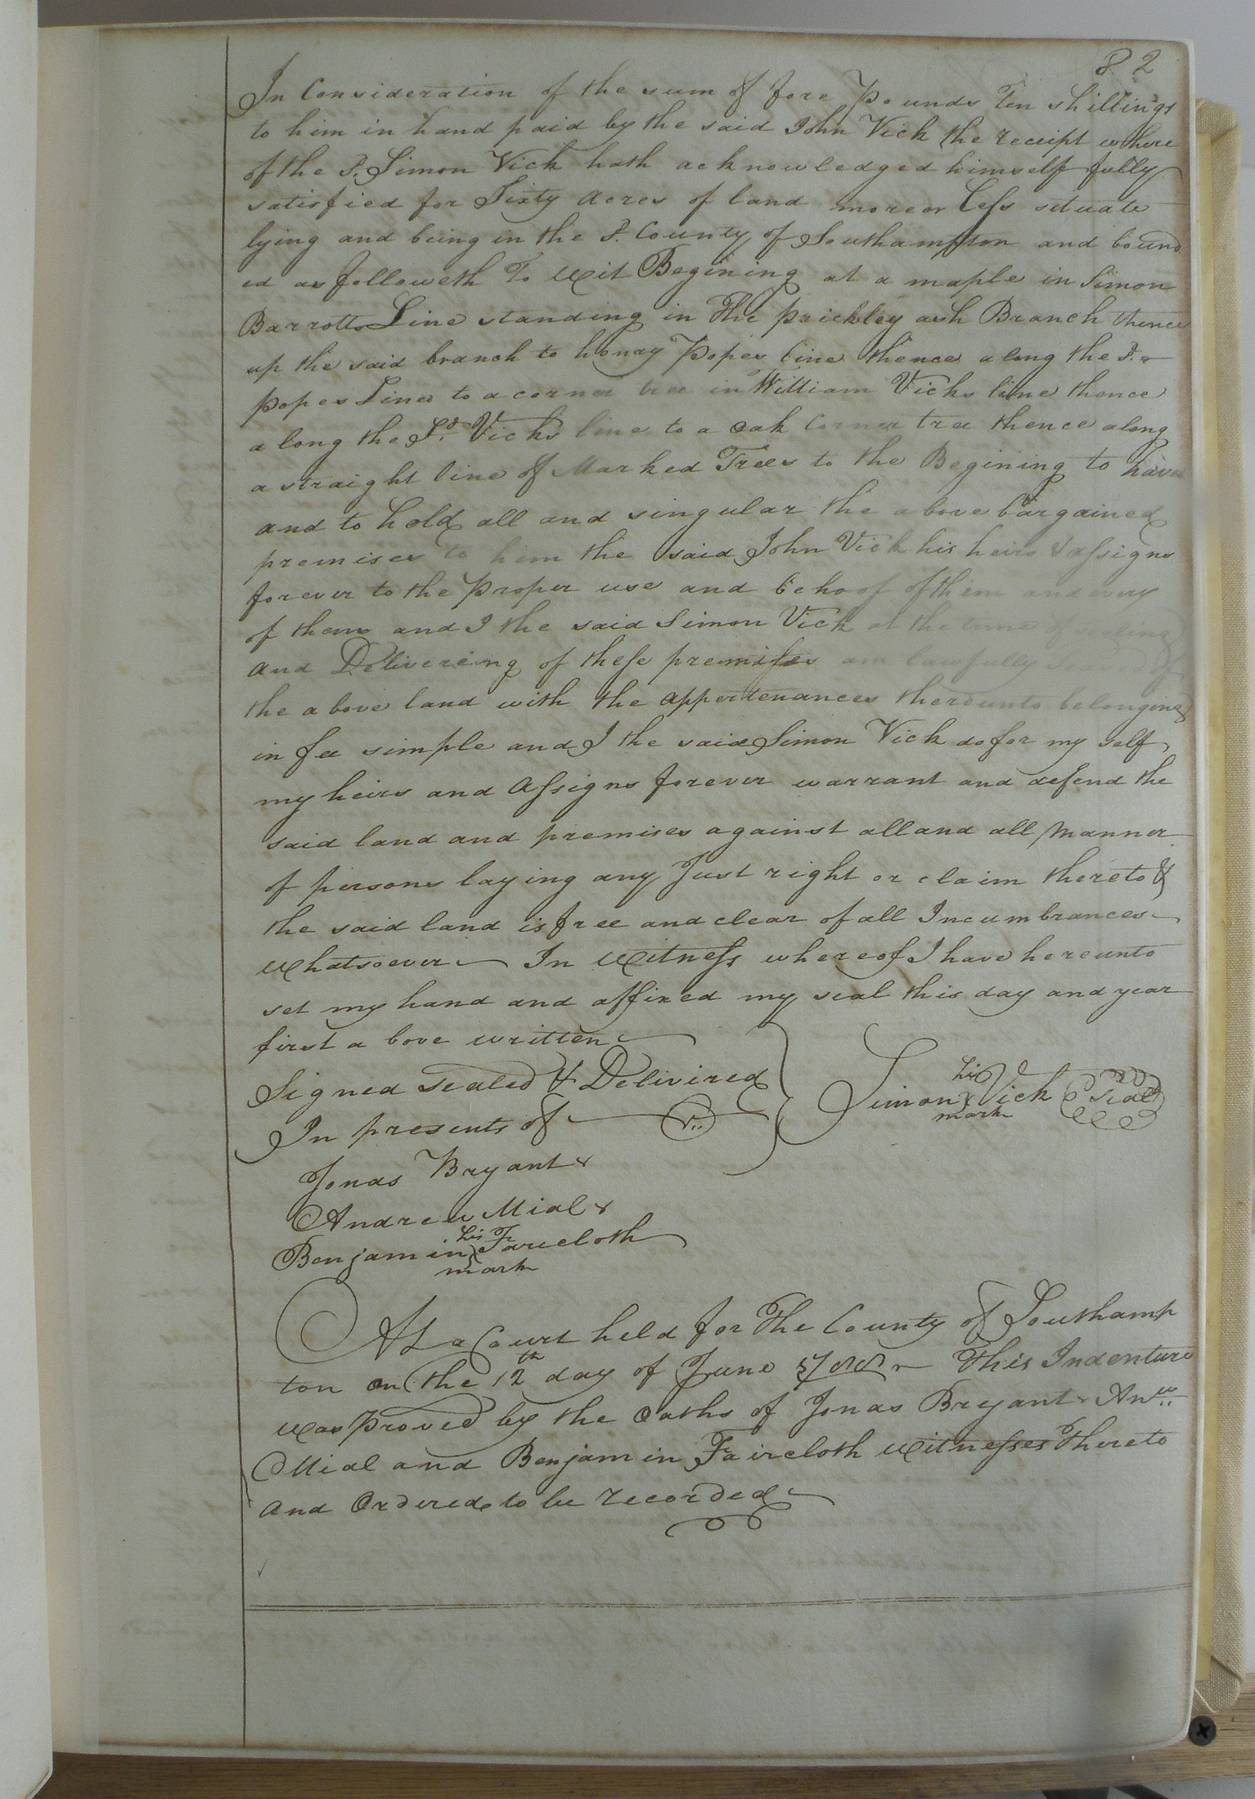 82
In Consideration of the sum of fore Pounds Ten shillings
to him in hand paid by the said John Vick the receipt where
of the S. Simon Vick hath acknowledged himself fully
satisfied for Sixty acres of land more or Less situate
lying and being in the S. County of Southampton and bound
ed as followeth To Wit Begining at a maple in Simon
Barrotts Line standing in The prickley ash Branch thence
up the said branch to henry Popes line thence along the S.
popes Lines to a corner tree in William Vicks line thence
along the Sd. Vicks line to a oak Corner tree thence along
a straight line of Marked Trees to the Begining to have
and to hold all and singular the above bargained
premises to him the said John Vick his heirs & assigns
forever to the Proper use and behoof of them and every
of them and I the said Simon Vick at the time
and Delivereing of these premises am lawfully of
the above land with the appertenances thereunto belonging
in fee simple and I the said Simon Vick do for my self
my heirs and Assigns forever warrant and defend the
said land and premises against all and all Manner
of persons laying any Just right or claim thereto &
the said land is free and clear of all Incumbrances
Whatsoever In Witness whereof I have hereunto
set my hand and affixed my seal this day and year
first above written
Signed sealed & Delivired
In presents of
Simon his mark Vick Seal
Jonas Bryant
Andrew Mial
Benjamin his mark Faircloth
At a Court held for The County of Southamp
ton on the 12th day of June This Indenture
was Proved by the Oaths of Jonas Bryant Anw
Mial and Benjamin Faircloth Witnesses Thereto
and Ordered to be recorded